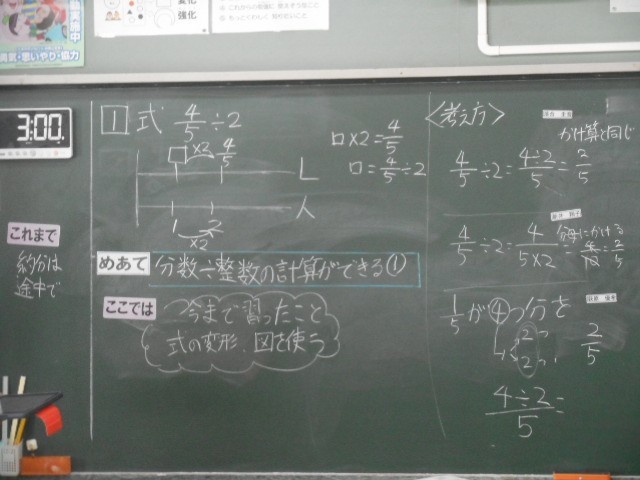 変化
強化
満実・思いやり・協力
3:00
これまで
約分は
途中で
1 式 4/5÷2
□ ×2 4/5
L
人
1 2
×2
□×2=4/5
□=4/5÷2
めあて 分数÷整数の計算ができる①
ここでは
今まで習ったこと
式の変形、図を使う
〈考え方〉
かけ算と同じ
4/5÷2=4÷2/5=2/5
分母にかける
4/5÷2=4/5×2=4/10=2/5
1/5が④つ分を
2つ
2つ
2/5
4÷2/5=